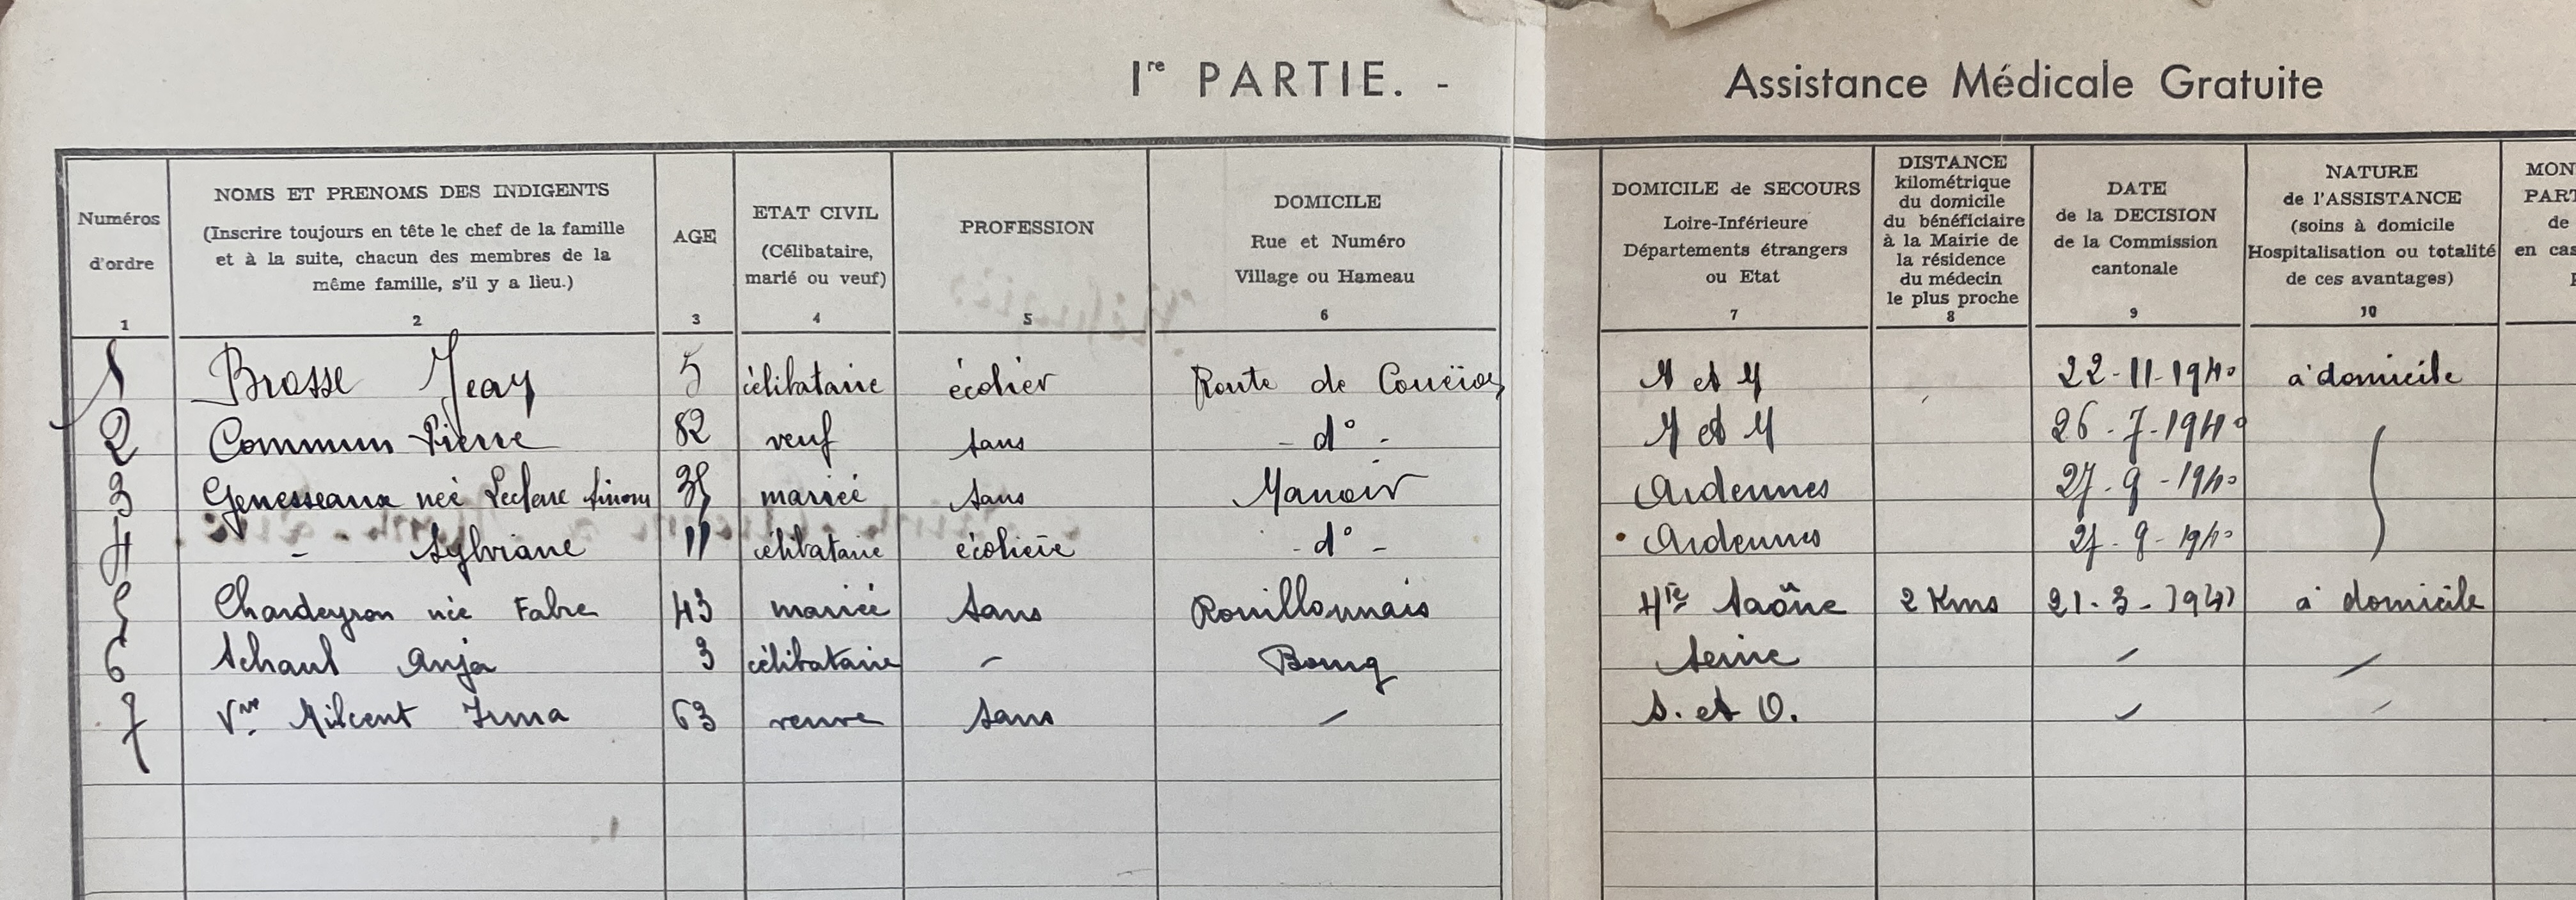 Ire PARTIE. - Assistance Médicale Gratuite
Numéros d'ordre 1
NOMS ET PRENOMS DES INDIGENTS (Inscrire toujours en tête le chef de la famille et à la suite, chacun des membres de la même famille, s'il y a lieu.) 2
AGE 3
ETAT CIVIL (Célibataire, marié ou veuf) 4
PROFESSION 5
DOMICILE Rue et Numéro Village ou Hameau 6
DOMICILE de SECOURS Loire-Inférieure Départements étrangers ou Etat 7
DISTANCE kilométrique du domicile du bénéficiaire à la Mairie de la résidence du médecin le plus proche 8
DATE de la DECISION de la Commission cantonale 9
NATURE de l'ASSISTANCE (soins à domicile Hospitalisation ou totalité de ces avantages) 10
MON PART de en cas
1 Brosse Jean 5 célibataire écolier Route de M et M 22-11-1940 à domicile
2 Commun Pierre 82 veuf sans - d° - M et M 26-7-1940
3 Genesseaux née Leclerc 35 mariée sans Manoir Ardennes 27-9-1940
4 - Sylviane 11 célibataire écolière - d° - Ardennes 27-9-1940
5 Chardeyron née Fabre 43 mariée sans Rouillonnais Hte Saône 2 Kms 21-3-1941 à domicile
6 Schaul Anja 3 célibataire - Bourg Seine
7 Vve Milcent Irma 63 veuve sans S. et O.